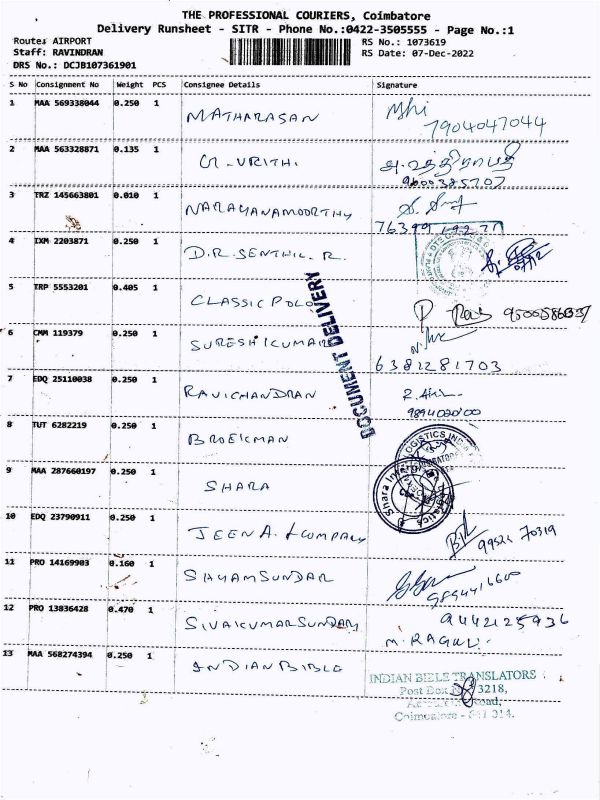 THE PROFESSIONAL COURIERS, Coimbatore
Delivery Runsheet - SITR - Phone No.:0422-3505555 - Page No.:1
Route: AIRPORT
Staff: RAVINDRAN
DRS No.: DCJB107361901
RS No.: 1073619
RS Date: 07-Dec-2022
S No Consignment No Weight PCS Consignee Details Signature
1 MAA 569338044 0.250 1 MATHARASAN
7904047044
2 MAA 563328871 0.135 1
9600385707
3 TRZ 145663801 0.010 1 NARAYANAMOORTHY
4 IXM 2203871 0.250 1 D.R. SENTHIL. R.
5 TRP 5553201 0.405 1 CLASSIC POLO
6 CMM 119379 0.250 1 SURESH KUMAR
6381281703
7 EDQ 25110038 0.250 1 RAVICHANDRAN
8 TUT 6282219 0.250 1 BROEKMAN
9 MAA 287660197 0.250 1 SHARA
10 EDQ 23790911 0.250 1 JEENA & COMPANY
99521 70319
11 PRO 14169903 0.160 1 SHYAM SUNDAR
9894416600
12 PRO 13836428 0.470 1 SIVAKUMAR SUNDARY
9442125936
M. RAGHU.
13 MAA 568274394 0.250 1 INDIAN BIBLE
DOCUMENT DELIVERY
INDIAN BIBLE TRANSLATORS
Post Box 3218,
Road,
Coimbatore - 641 014.